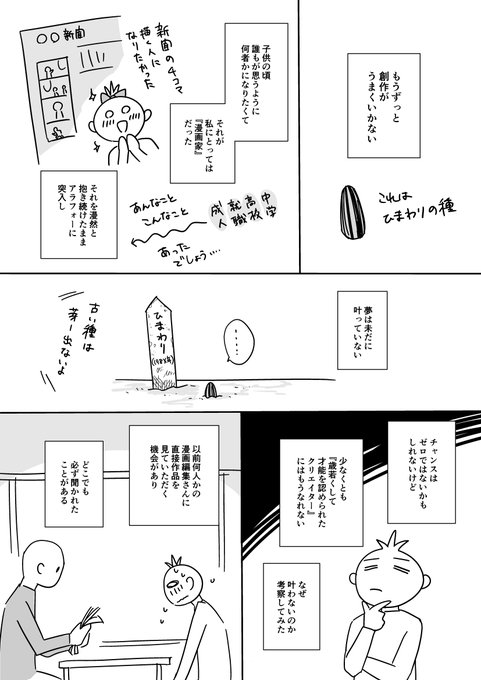 もうずっと
創作が
うまくいかない
これは
ひまわりの種
子供の頃
誰もが思うように
何者かになりたくて
新聞の4コマ
描く人に
なりたかった
○○新聞
それが
私にとっては
『漫画家』
だった
それを漫然と
抱き続けたまま
アラフォーに
突入し
中学
高校
就職
成人
あんなこと
こんなこと
あった
でしょう…
夢は未だに
叶っていない
…
ひまわり
古い種は
芽ー出ないよ
チャンスは
ゼロではないかも
しれないけど
少なくとも
『歳若くして
才能を認められた
クリエイター』
にはもうなれない
なぜ
叶わないのか
考察してみた
以前何人かの
漫画編集さんに
直接作品を
見ていただく
機会があり
どこでも
必ず聞かれた
ことがある